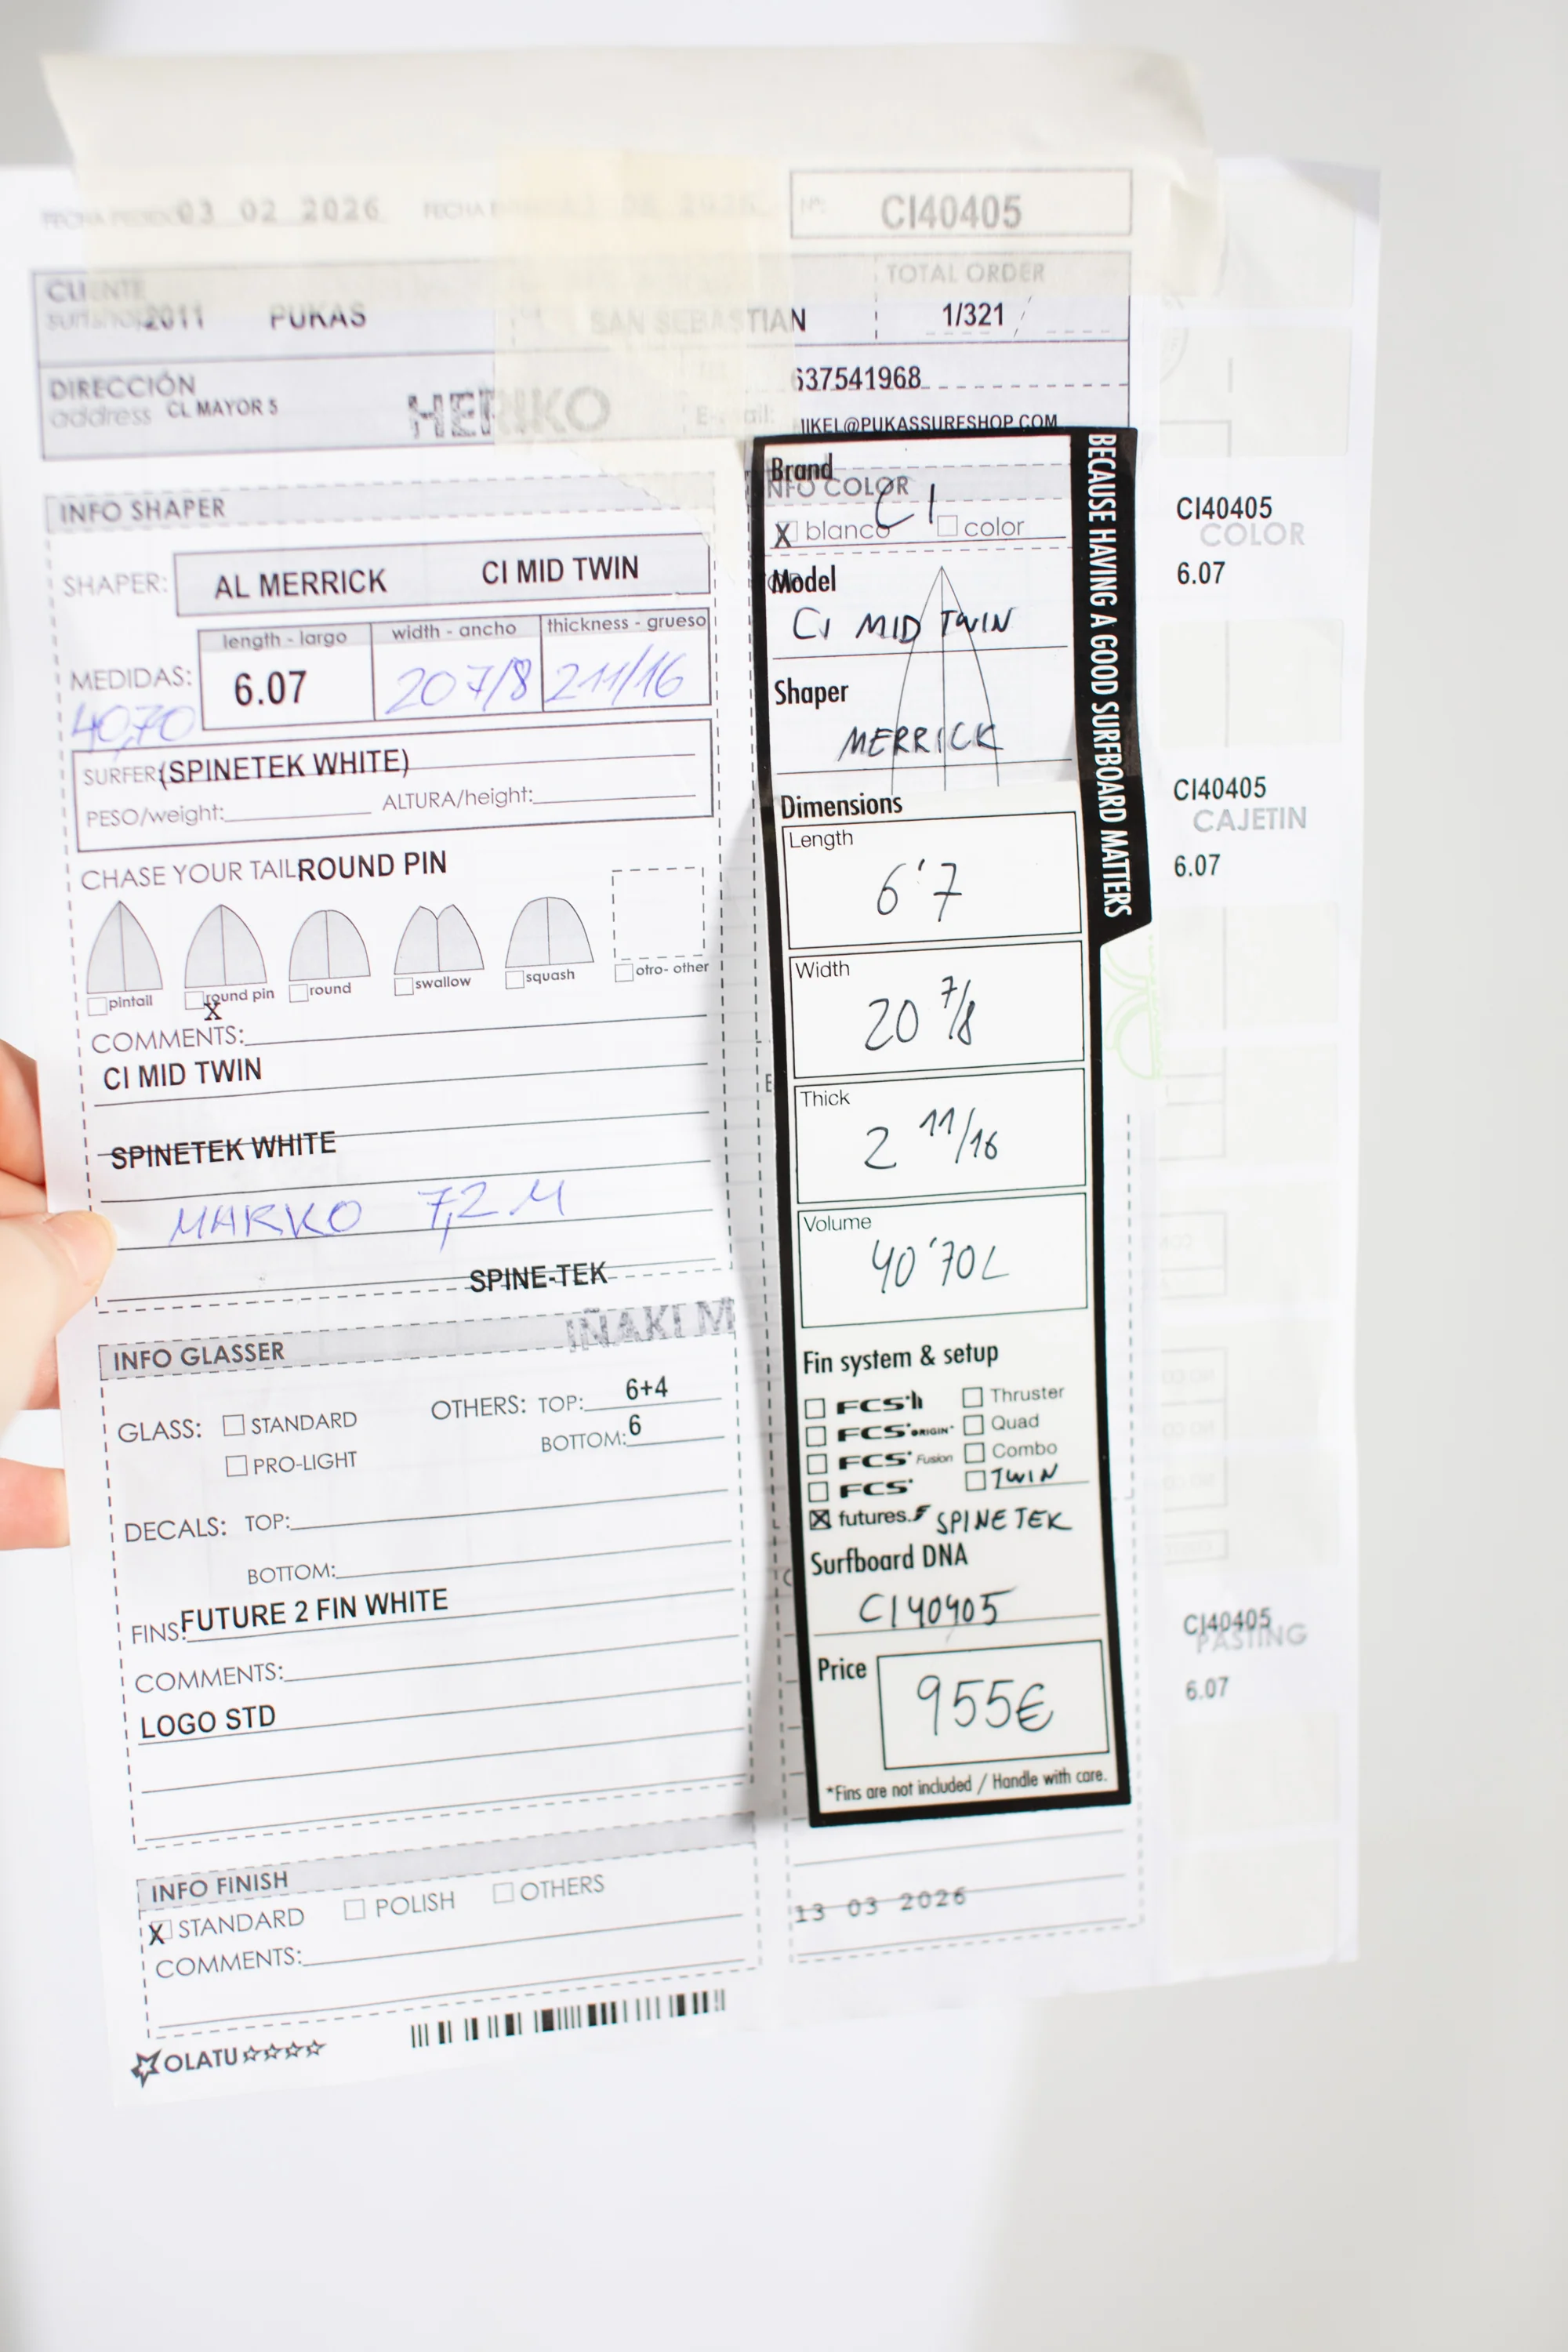 FECHA PEDIDO 03 02 2026 FECHA
Nº: CI40405
CLIENTE
surfshop 2011 PUKAS SAN SEBASTIAN
TOTAL ORDER
1/321
DIRECCIÓN
address CL MAYOR 5
HENKO
637541968
E-mail:
MIKEL@PUKASSURFSHOP.COM
INFO SHAPER
SHAPER: AL MERRICK CI MID TWIN
length - largo width - ancho thickness - grueso
MEDIDAS: 6.07 20 7/8 2 11/16
40,70
SURFER: (SPINETEK WHITE)
PESO/weight: ALTURA/height:
CHASE YOUR TAIL: ROUND PIN
pintail X round pin round swallow squash otro- other
COMMENTS:
CI MID TWIN
SPINETEK WHITE
MARKO 7,2 M
SPINE-TEK
IÑAKI M
INFO GLASSER
GLASS: STANDARD OTHERS: TOP: 6+4
PRO-LIGHT BOTTOM: 6
DECALS: TOP:
BOTTOM:
FINS: FUTURE 2 FIN WHITE
COMMENTS:
LOGO STD
INFO FINISH
X STANDARD POLISH OTHERS
COMMENTS:
OLATU
Brand
INFO COLOR
CI
X blanco color
Model
CI MID TWIN
Shaper
MERRICK
Dimensions
Length
6'7
Width
20 7/8
Thick
2 11/16
Volume
40'70L
Fin system & setup
FCS II Thruster
FCS ORIGIN Quad
FCS Fusion Combo
FCS TWIN
X futures. SPINETEK
Surfboard DNA
CI40405
Price
955€
*Fins are not included / Handle with care.
BECAUSE HAVING A GOOD SURFBOARD MATTERS
13 03 2026
CI40405
COLOR
6.07
CI40405
CAJETIN
6.07
CI40405
PASTING
6.07